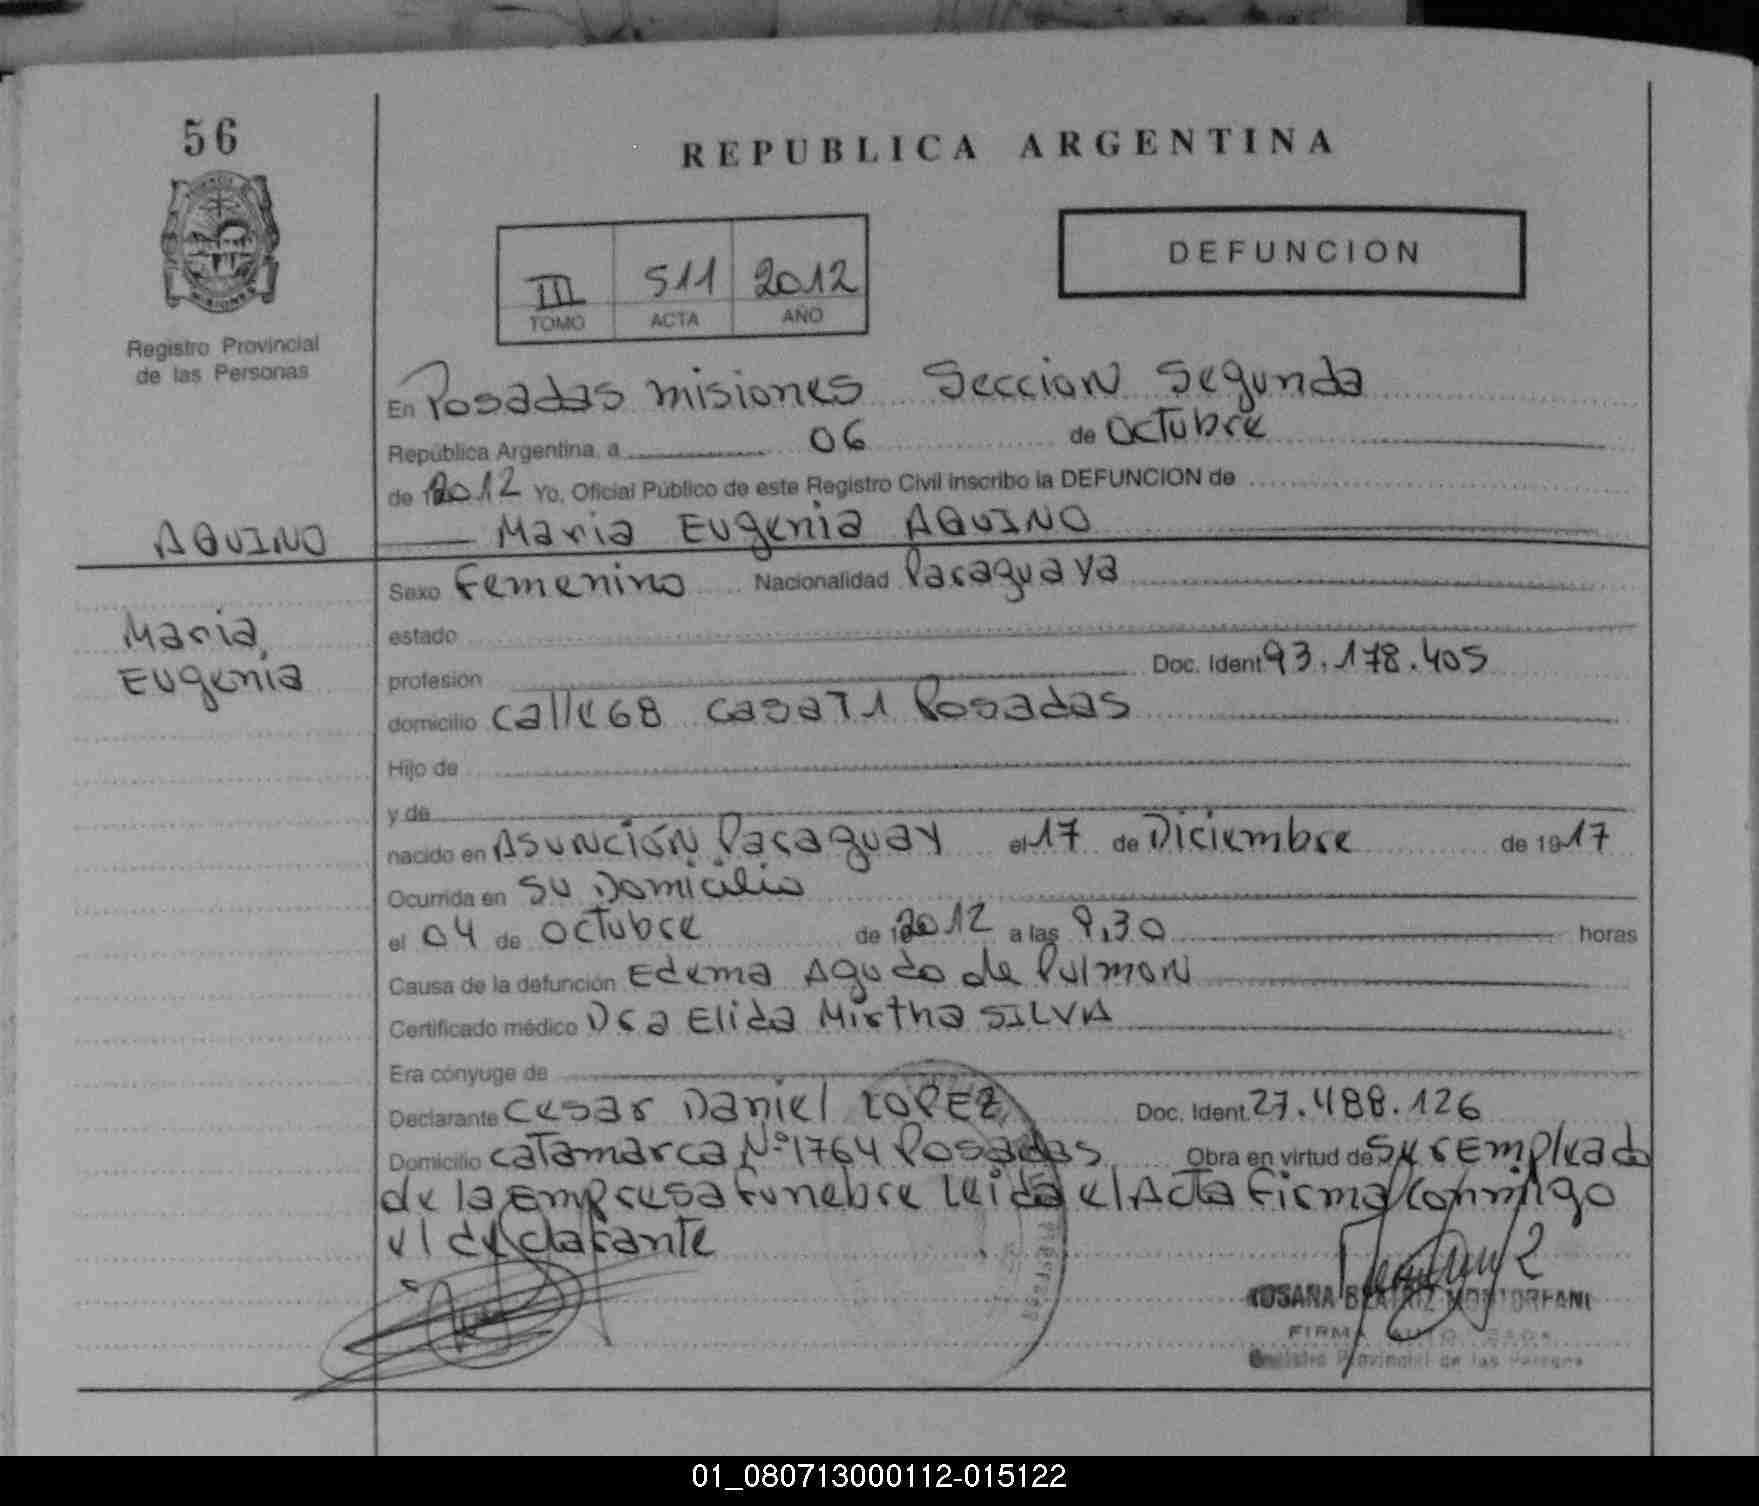 56
REPUBLICA ARGENTINA
DEFUNCION
III 511 2012
TOMO ACTA AÑO
Registro Provincial
de las Personas
En Posadas misiones Seccion Segunda
República Argentina, a 06 de Octubre
de 2012 Yo, Oficial Público de este Registro Civil inscribo la DEFUNCION de
AQUINO
Maria Eugenia AQUINO
Sexo Femenino Nacionalidad Paraguaya
Maria,
Eugenia
estado
profesión Doc. Ident 93.178.405
domicilio calle 68 casa 71 Posadas
Hijo de
y de
nacido en Asunción Paraguay el 17 de Diciembre de 1917
Ocurrida en su Domicilio
el 04 de octubre de 2012 a las 9,30 horas
Causa de la defunción Edema Agudo de Pulmon
Certificado médico Dra Elida Mirtha SILVA
Era cónyuge de
Declarante Cesar Daniel LOPEZ Doc. Ident. 27.488.126
Domicilio catamarca Nº 1764 Posadas Obra en virtud de ser Empleado
de la Empresa Funebre Leida el Acta Firma Conmigo
el declarante
ROSANA BEATRIZ
FIRMA AUTORIZADA
Registro Provincial de las Personas
01_080713000112-015122